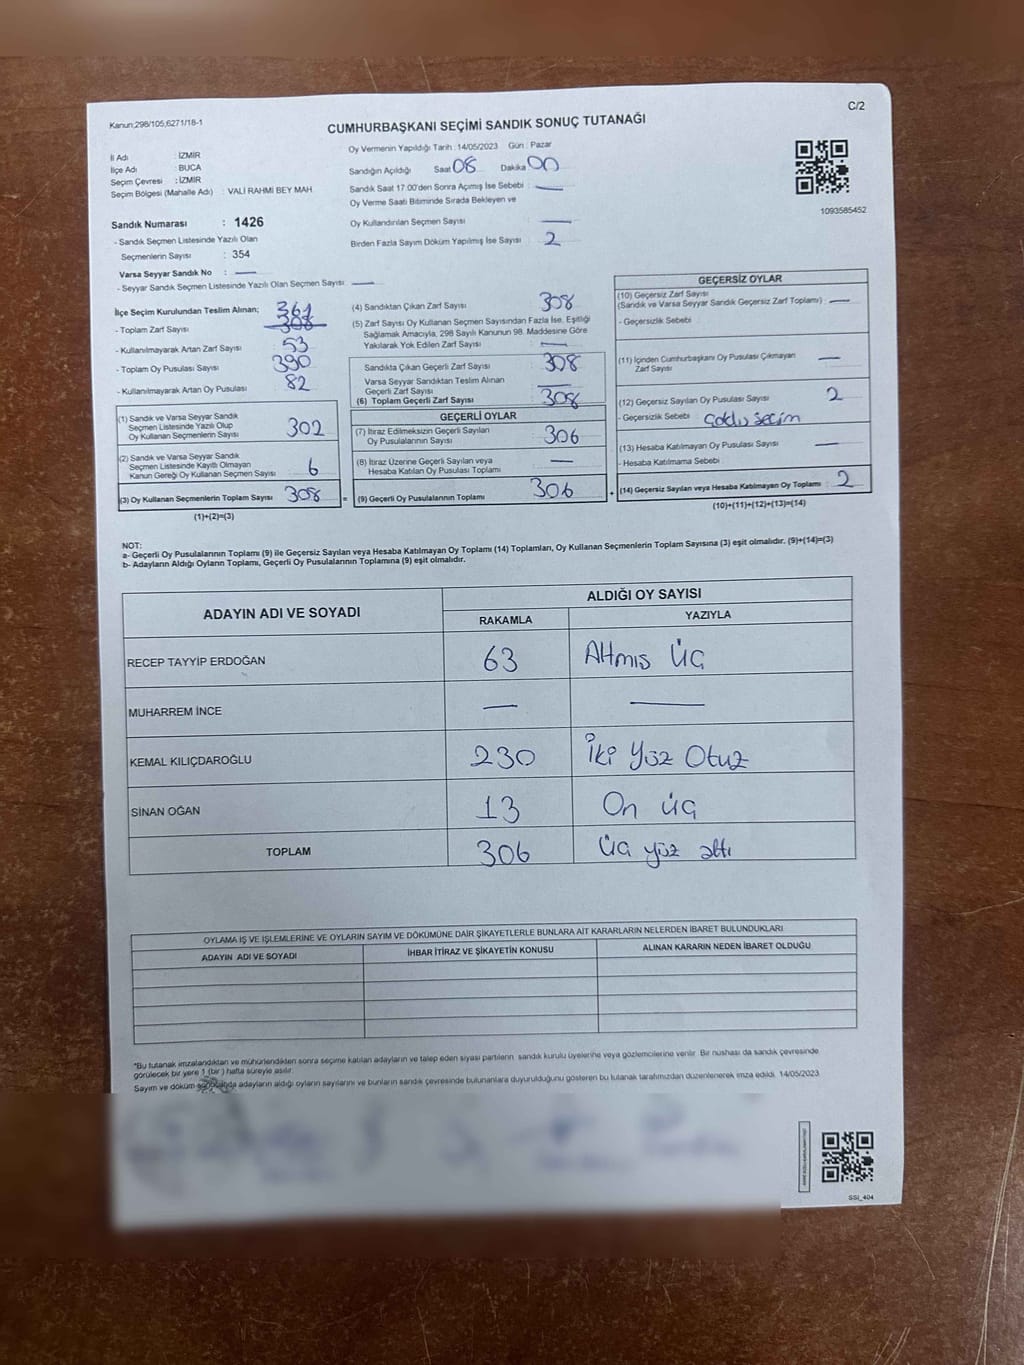 Kanun;298/105,6271/18-1
C/2
CUMHURBAŞKANI SEÇİMİ SANDIK SONUÇ TUTANAĞI
Oy Vermenin Yapıldığı Tarih : 14/05/2023 Gün : Pazar
İl Adı : İZMİR
İlçe Adı : BUCA
Seçim Çevresi : İZMİR
Seçim Bölgesi (Mahalle Adı) : VALİ RAHMİ BEY MAH
Sandığın Açıldığı Saat 08 Dakika 00
Sandık Saat 17:00'den Sonra Açımış İse Sebebi : —
Oy Verme Saati Bitiminde Sırada Bekleyen ve
Oy Kullandırılan Seçmen Sayısı : —
Birden Fazla Sayım Döküm Yapılmış İse Sayısı : 2
1093585452
Sandık Numarası : 1426
- Sandık Seçmen Listesinde Yazılı Olan
Seçmenlerin Sayısı : 354
Varsa Seyyar Sandık No : —
- Seyyar Sandık Seçmen Listesinde Yazılı Olan Seçmen Sayısı : —
İlçe Seçim Kurulundan Teslim Alınan; 361
- Toplam Zarf Sayısı 308
- Kullanılmayarak Artan Zarf Sayısı 53
- Toplam Oy Pusulası Sayısı 390
- Kullanılmayarak Artan Oy Pusulası 82
(1) Sandık ve Varsa Seyyar Sandık
Seçmen Listesinde Yazılı Olup
Oy Kullanan Seçmenlerin Sayısı 302
(2) Sandık ve Varsa Seyyar Sandık
Seçmen Listesinde Kayıtlı Olmayan
Kanun Gereği Oy Kullanan Seçmen Sayısı 6
(3) Oy Kullanan Seçmenlerin Toplam Sayısı 308
(1)+(2)=(3)
(4) Sandıktan Çıkan Zarf Sayısı 308
(5) Zarf Sayısı Oy Kullanan Seçmen Sayısından Fazla İse, Eşitliği
Sağlamak Amacıyla, 298 Sayılı Kanunun 98. Maddesine Göre
Yakılarak Yok Edilen Zarf Sayısı : —
Sandıkta Çıkan Geçerli Zarf Sayısı 308
Varsa Seyyar Sandıktan Teslim Alınan
Geçerli Zarf Sayısı —
(6) Toplam Geçerli Zarf Sayısı 308
GEÇERLİ OYLAR
(7) İtiraz Edilmeksizin Geçerli Sayılan
Oy Pusulalarının Sayısı 306
(8) İtiraz Üzerine Geçerli Sayılan veya
Hesaba Katılan Oy Pusulası Toplamı —
= (9) Geçerli Oy Pusulalarının Toplamı 306
GEÇERSİZ OYLAR
(10) Geçersiz Zarf Sayısı
(Sandık ve Varsa Seyyar Sandık Geçersiz Zarf Toplamı) : —
- Geçersizlik Sebebi :
(11) İçinden Cumhurbaşkanı Oy Pusulası Çıkmayan
Zarf Sayısı —
(12) Geçersiz Sayılan Oy Pusulası Sayısı 2
- Geçersizlik Sebebi : çoklu seçim
(13) Hesaba Katılmayan Oy Pusulası Sayısı —
- Hesaba Katılmama Sebebi :
+ (14) Geçersiz Sayılan veya Hesaba Katılmayan Oy Toplamı : 2
(10)+(11)+(12)+(13)=(14)
NOT:
a- Geçerli Oy Pusulalarının Toplamı (9) ile Geçersiz Sayılan veya Hesaba Katılmayan Oy Toplamı (14) Toplamları, Oy Kullanan Seçmenlerin Toplam Sayısına (3) eşit olmalıdır. (9)+(14)=(3)
b- Adayların Aldığı Oyların Toplamı, Geçerli Oy Pusulalarının Toplamına (9) eşit olmalıdır.
ADAYIN ADI VE SOYADI
ALDIĞI OY SAYISI
RAKAMLA YAZIYLA
RECEP TAYYİP ERDOĞAN 63 Altmış Üç
MUHARREM İNCE — —
KEMAL KILIÇDAROĞLU 230 İki Yüz Otuz
SİNAN OĞAN 13 On üç
TOPLAM 306 Üç yüz altı
OYLAMA İŞ VE İŞLEMLERİNE VE OYLARIN SAYIM VE DÖKÜMÜNE DAİR ŞİKAYETLERLE BUNLARA AİT KARARLARIN NELERDEN İBARET BULUNDUKLARI
ADAYIN ADI VE SOYADI İHBAR İTİRAZ VE ŞİKAYETİN KONUSU ALINAN KARARIN NEDEN İBARET OLDUĞU
*Bu tutanak imzalandıktan ve mühürlendikten sonra seçime katılan adayların ve talep eden siyasi partilerin sandık kurulu üyelerine veya gözlemcilerine verilir. Bir nushası da sandık çevresinde
görülecek bir yere 1 (bir ) hafta süreyle asılır.
Sayım ve döküm sonucunda adayların aldığı oyların sayılarını ve bunların sandık çevresinde bulunanlara duyurulduğunu gösteren bu tutanak tarafımızdan düzenlenerek imza edildi. 14/05/2023
SSI_404